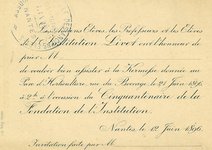 Les Anciens Elèves, les Professeurs et les Elèves
de l'Institution Livet ont l'honneur de
prier M
de vouloir bien assister à la Kermesse donnée au
Parc d'Horticulture, rue du Boccage, le 21 Juin 1896,
à 2h à l'occasion du Cinquantenaire de la
Fondation de l'Institution.
Nantes, le 12 Juin 1896.
Invitation faite par M